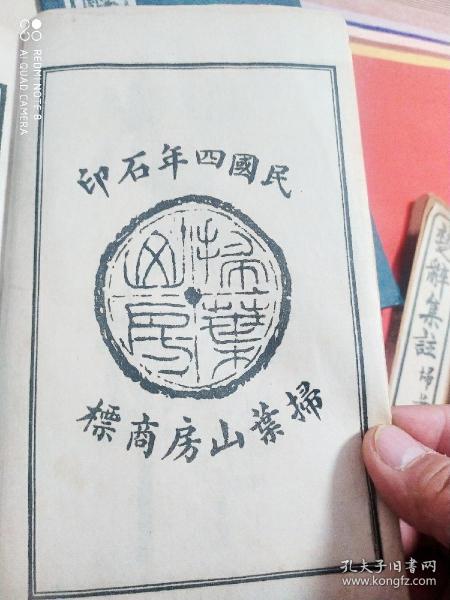 民國四年石印
掃葉山房
掃葉山房商標
楚辭集註 掃葉
REDMI NOTE 8
AI QUAD CAMERA
孔夫子旧书网
www.kongfz.com